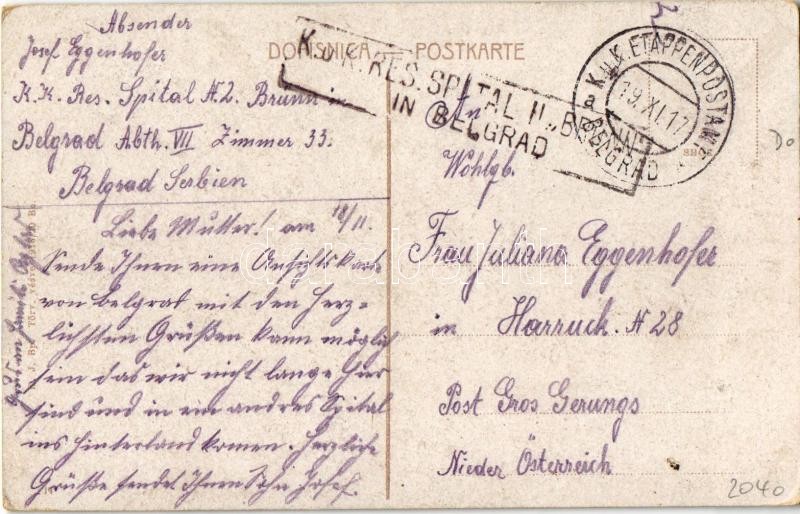 Absender
Josef Eggenhofer
K.K. Res. Spital N. 2. Brünn in
Belgrad Abth. VII Zimmer 33.
Belgrad Serbien
Liebe Mutter! am 18/11.
Sende Ihnen eine Ansichtskarte
von Belgrad mit den herz=
lichsten Grüßen kann möglich
sein das wir nicht lange hier
sind und in ein andres Spital
ins Hinterland komen. Herzliche
Grüße sendet Ihnen Sohn Josef.
Gruß an
DOPISNICA — POSTKARTE
K.u.K. RES. SPITAL II. „BRÜNN"
IN BELGRAD
K.u.K. ETAPPENPOSTAMT
19.XI.17
a
BELGRAD
An
Wohlgb.
Frau Juliana Eggenhofer
in Harruck. N 28
Post Gros Gerungs
Nieder Österreich
2040
Do